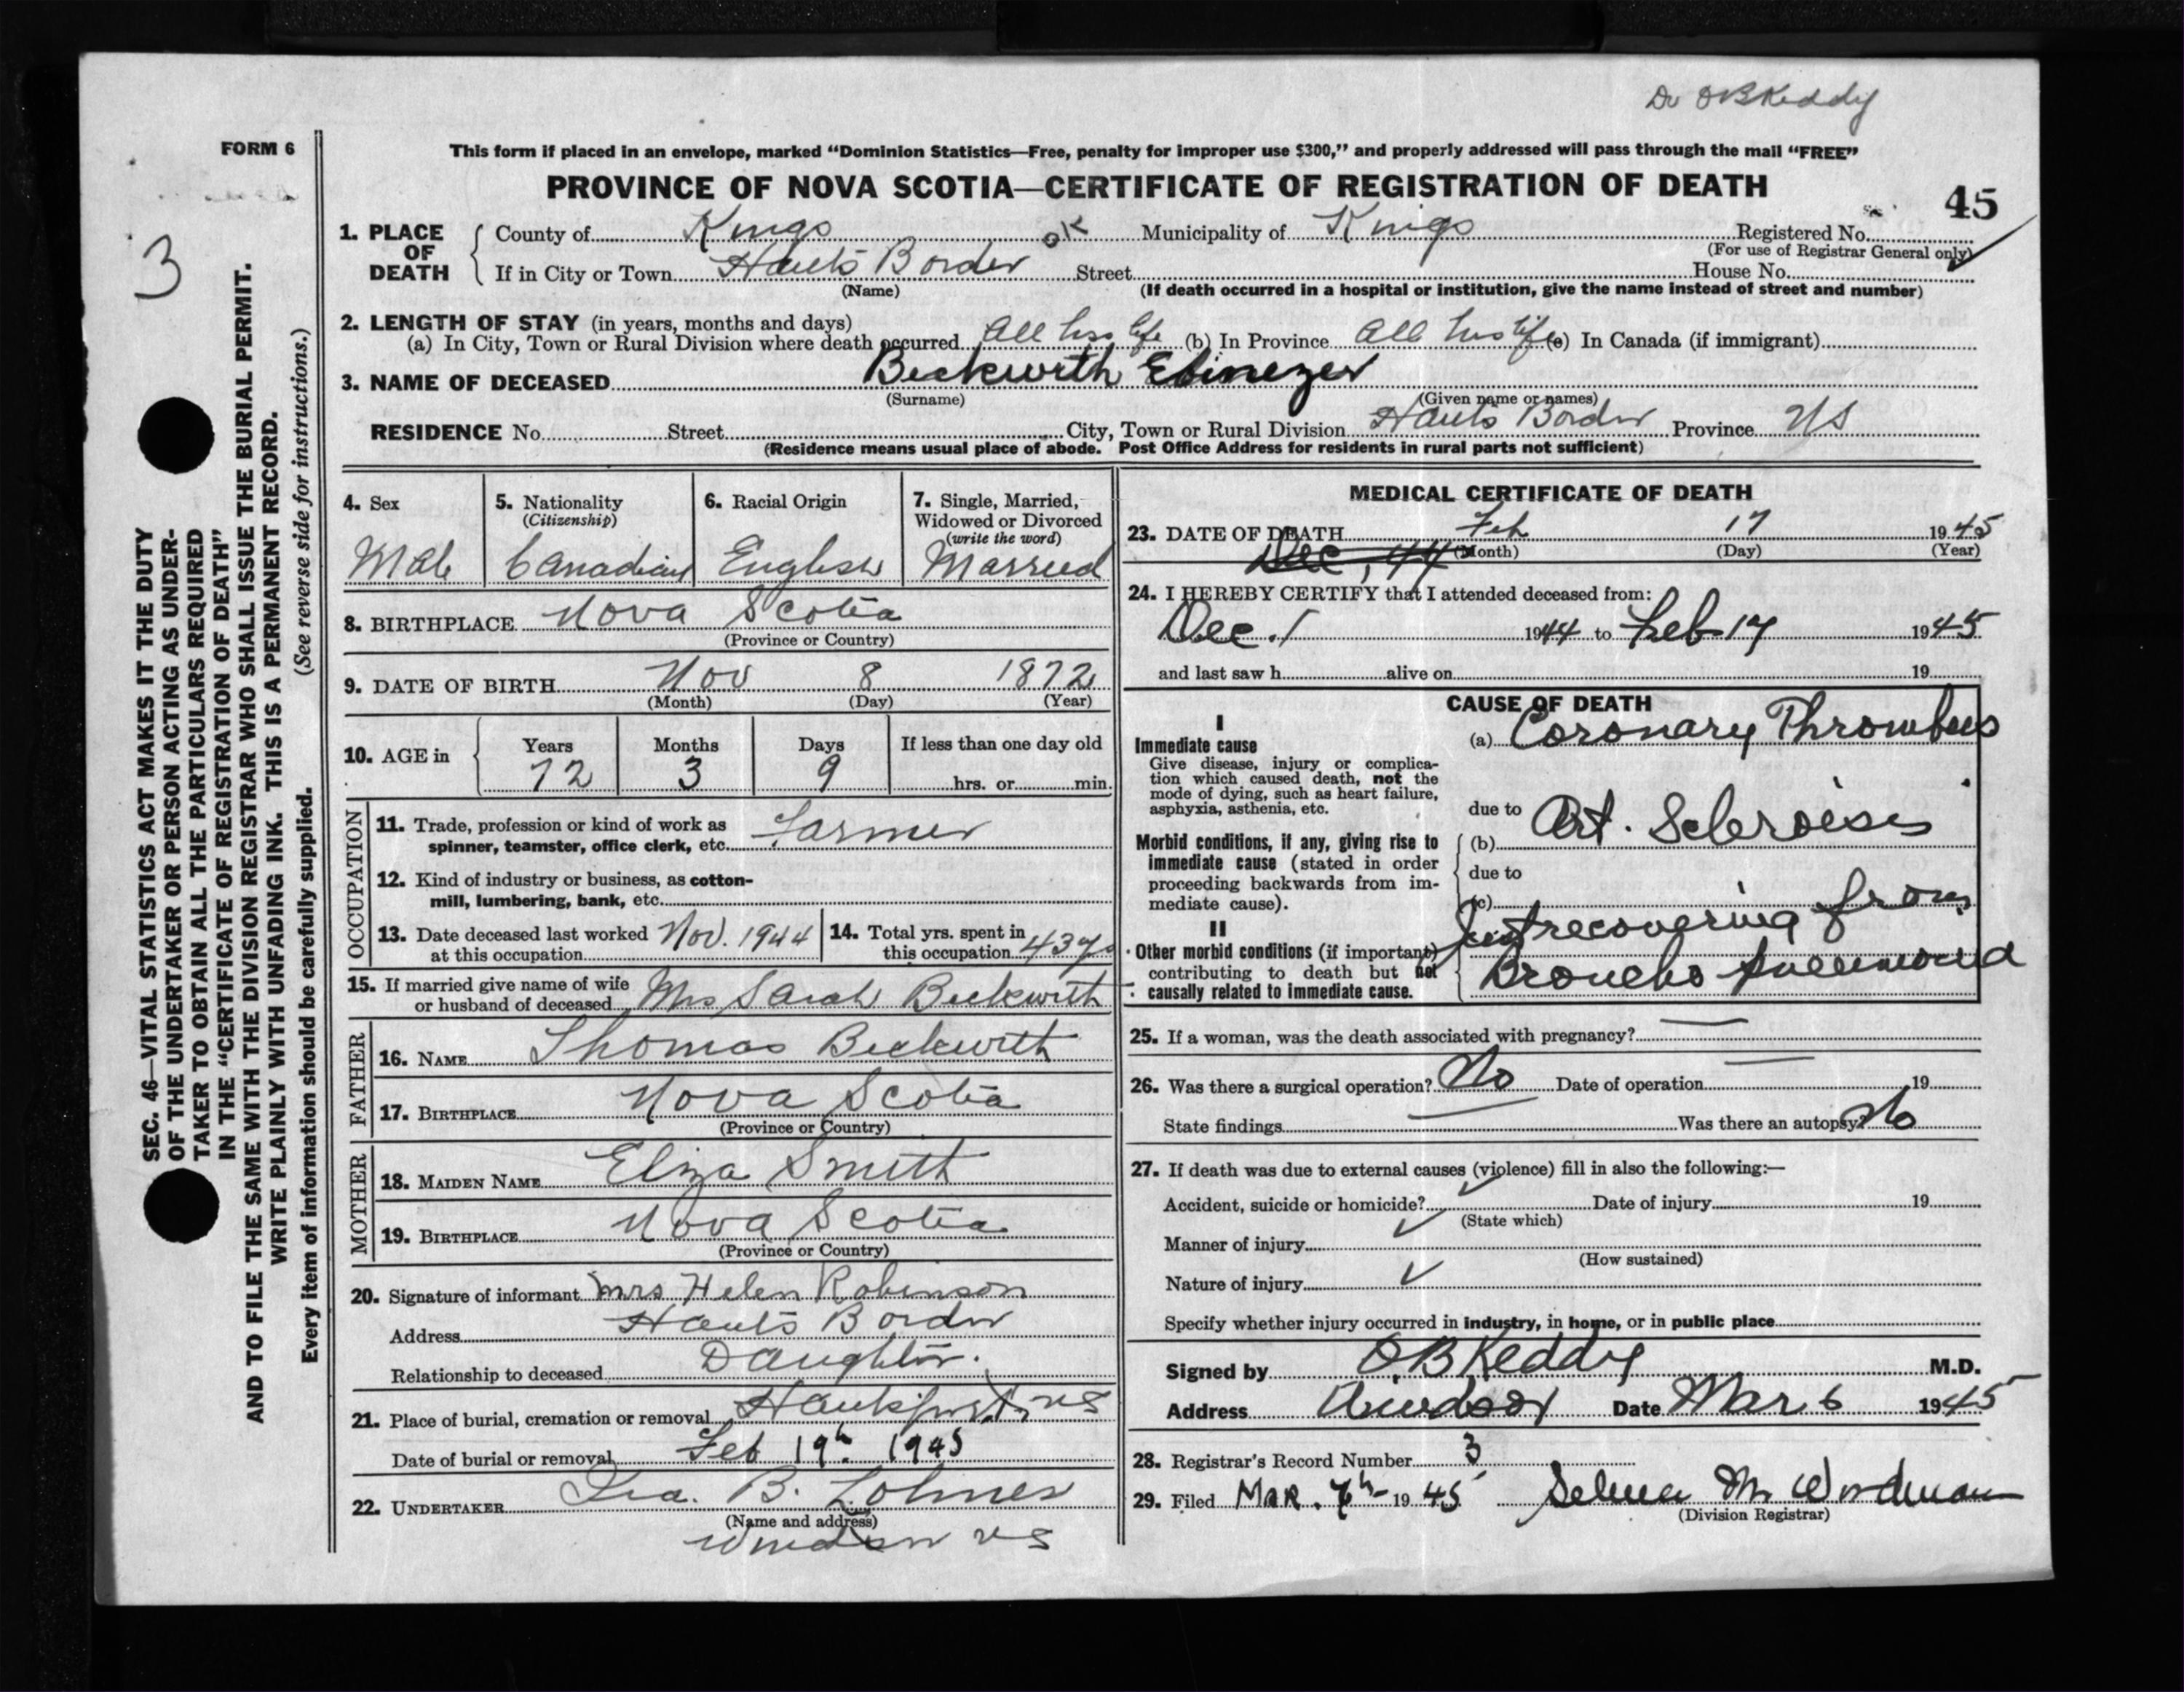 Dr OBKeddy
FORM 6
This form if placed in an envelope, marked “Dominion Statistics—Free, penalty for improper use $300,” and properly addressed will pass through the mail “FREE”
PROVINCE OF NOVA SCOTIA—CERTIFICATE OF REGISTRATION OF DEATH
45
3
SEC. 46—VITAL STATISTICS ACT MAKES IT THE DUTY
OF THE UNDERTAKER OR PERSON ACTING AS UNDER-
TAKER TO OBTAIN ALL THE PARTICULARS REQUIRED
IN THE “CERTIFICATE OF REGISTRATION OF DEATH”
AND TO FILE THE SAME WITH THE DIVISION REGISTRAR WHO SHALL ISSUE THE BURIAL PERMIT.
WRITE PLAINLY WITH UNFADING INK. THIS IS A PERMANENT RECORD.
Every item of information should be carefully supplied. (See reverse side for instructions.)
1. PLACE OF DEATH
County of Kings OK Municipality of Kings Registered No.
(For use of Registrar General only)
If in City or Town Hants Border Street House No.
(Name) (If death occurred in a hospital or institution, give the name instead of street and number)
2. LENGTH OF STAY (in years, months and days)
(a) In City, Town or Rural Division where death occurred All his life (b) In Province All his life (c) In Canada (if immigrant)
3. NAME OF DECEASED Beckwith Ebinezer
(Surname) (Given name or names)
RESIDENCE No. Street City, Town or Rural Division Hants Border Province NS
(Residence means usual place of abode. Post Office Address for residents in rural parts not sufficient)
4. Sex
Male
5. Nationality
(Citizenship)
Canadian
6. Racial Origin
English
7. Single, Married,
Widowed or Divorced
(write the word)
Married
8. BIRTHPLACE Nova Scotia
(Province or Country)
9. DATE OF BIRTH Nov 8 1872
(Month) (Day) (Year)
10. AGE in
Years Months Days If less than one day old
72 3 9 hrs. or min.
OCCUPATION
11. Trade, profession or kind of work as
spinner, teamster, office clerk, etc. Farmer
12. Kind of industry or business, as cotton-
mill, lumbering, bank, etc.
13. Date deceased last worked
at this occupation Nov. 1944
14. Total yrs. spent in
this occupation 43 ys
15. If married give name of wife
or husband of deceased Mrs Sarah Beckwith
FATHER
16. NAME Thomas Beckwith
17. BIRTHPLACE Nova Scotia
(Province or Country)
MOTHER
18. MAIDEN NAME Eliza Smith
19. BIRTHPLACE Nova Scotia
(Province or Country)
20. Signature of informant Mrs Helen Robinson
Address Hants Border
Relationship to deceased Daughter.
21. Place of burial, cremation or removal Hantsport, NS
Date of burial or removal Feb 19th 1945
22. UNDERTAKER Ira. B. Lohnes
(Name and address)
Windsor NS
MEDICAL CERTIFICATE OF DEATH
23. DATE OF DEATH Feb 17 1945
(Month) (Day) (Year)
Dec, 44
24. I HEREBY CERTIFY that I attended deceased from:
Dec. 1 1944 to Feb 17 1945
and last saw h alive on 19
CAUSE OF DEATH
I
Immediate cause
Give disease, injury or complica-
tion which caused death, not the
mode of dying, such as heart failure,
asphyxia, asthenia, etc.
(a) Coronary Thrombus
due to
Morbid conditions, if any, giving rise to
immediate cause (stated in order
proceeding backwards from im-
mediate cause).
(b) Art. Scleroisis
due to
(c)
II
Other morbid conditions (if important)
contributing to death but not
causally related to immediate cause.
Just recovering from
Broncho pneumonia
25. If a woman, was the death associated with pregnancy? —
26. Was there a surgical operation? No Date of operation — 19
State findings — Was there an autopsy? No
27. If death was due to external causes (violence) fill in also the following:—
Accident, suicide or homicide? Date of injury 19
(State which)
Manner of injury
(How sustained)
Nature of injury
Specify whether injury occurred in industry, in home, or in public place
Signed by OB Keddy M.D.
Address Windsor Date Mar 6 1945
28. Registrar's Record Number 3
29. Filed Mar. 7th 1945 Selena M. Woodman
(Division Registrar)